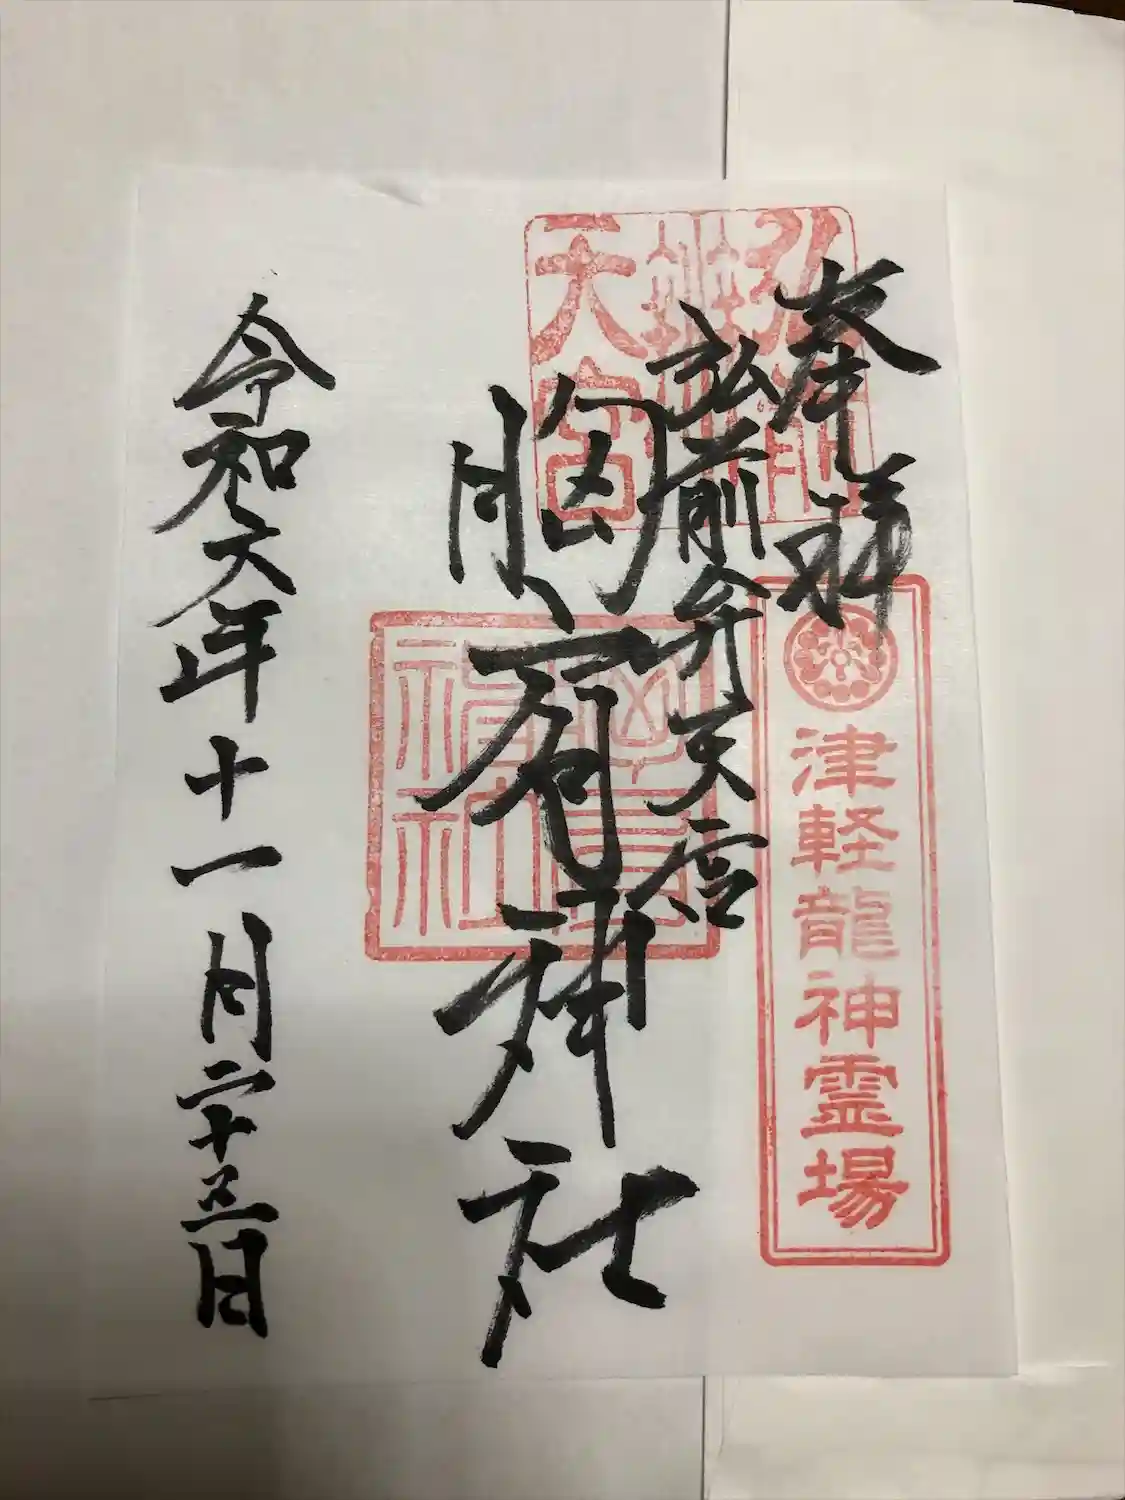 奉拝
弘前弁天宮
胸肩神社
令和六年十一月二十三日
津軽龍神霊場
弘前
天宮
胸肩
神社